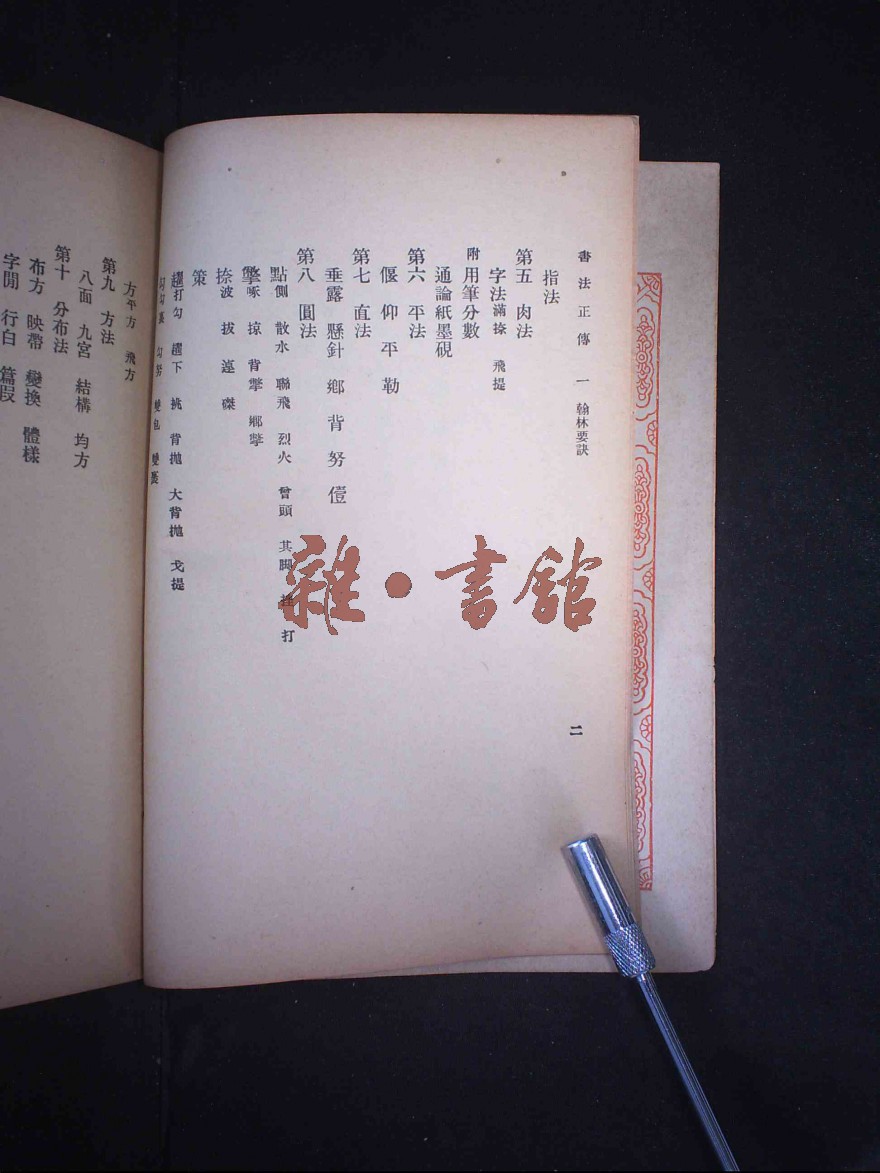 書法正傳 一 翰林要訣
二
指法
第五 肉法
字法 滿捺 飛提
附 用筆分數
通論紙墨硯
第六 平法
偃 仰 平 勒
第七 直法
垂露 懸針 鄉 背 努
第八 圓法
點 側 散水 聯飛 烈火 曾頭 其脚 打
啄 掠 背撆 鄉撆
捺 波 拔 磔
策
趯 打勾 趯下 挑 背拋 大背拋 戈提
勾努
方平方 飛方
第九 方法
八面 九宮 結構 均方
第十 分布法
布方 映帶 變換 體樣
字間 行白 篇段
雜·書館